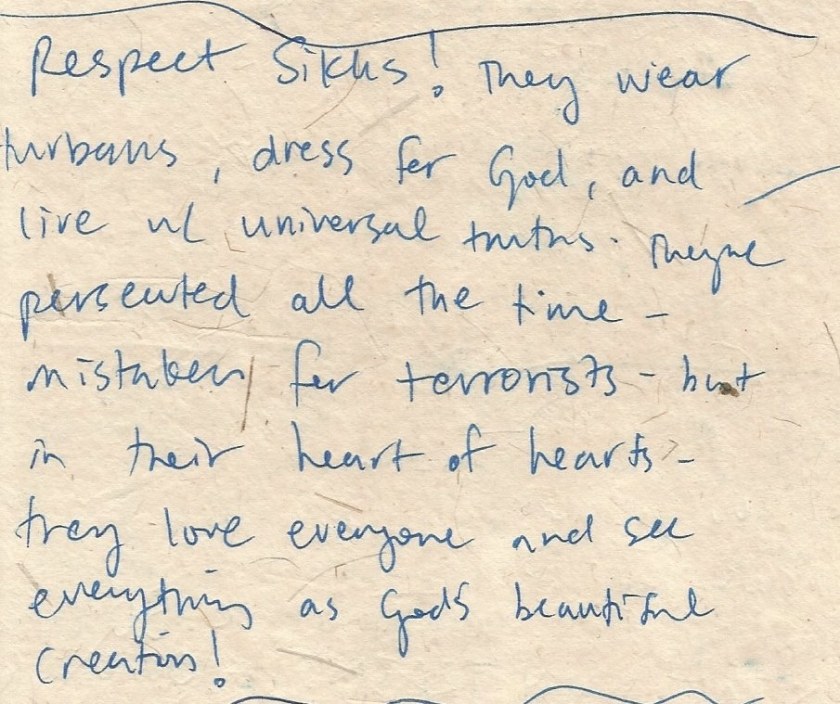 Respect Sikhs! They wear
turbans, dress for God, and
live w/ universal truths. They're
persecuted all the time -
mistaken for terrorists - but
in their heart of hearts -
they love everyone and see
everything as God's beautiful
creation!